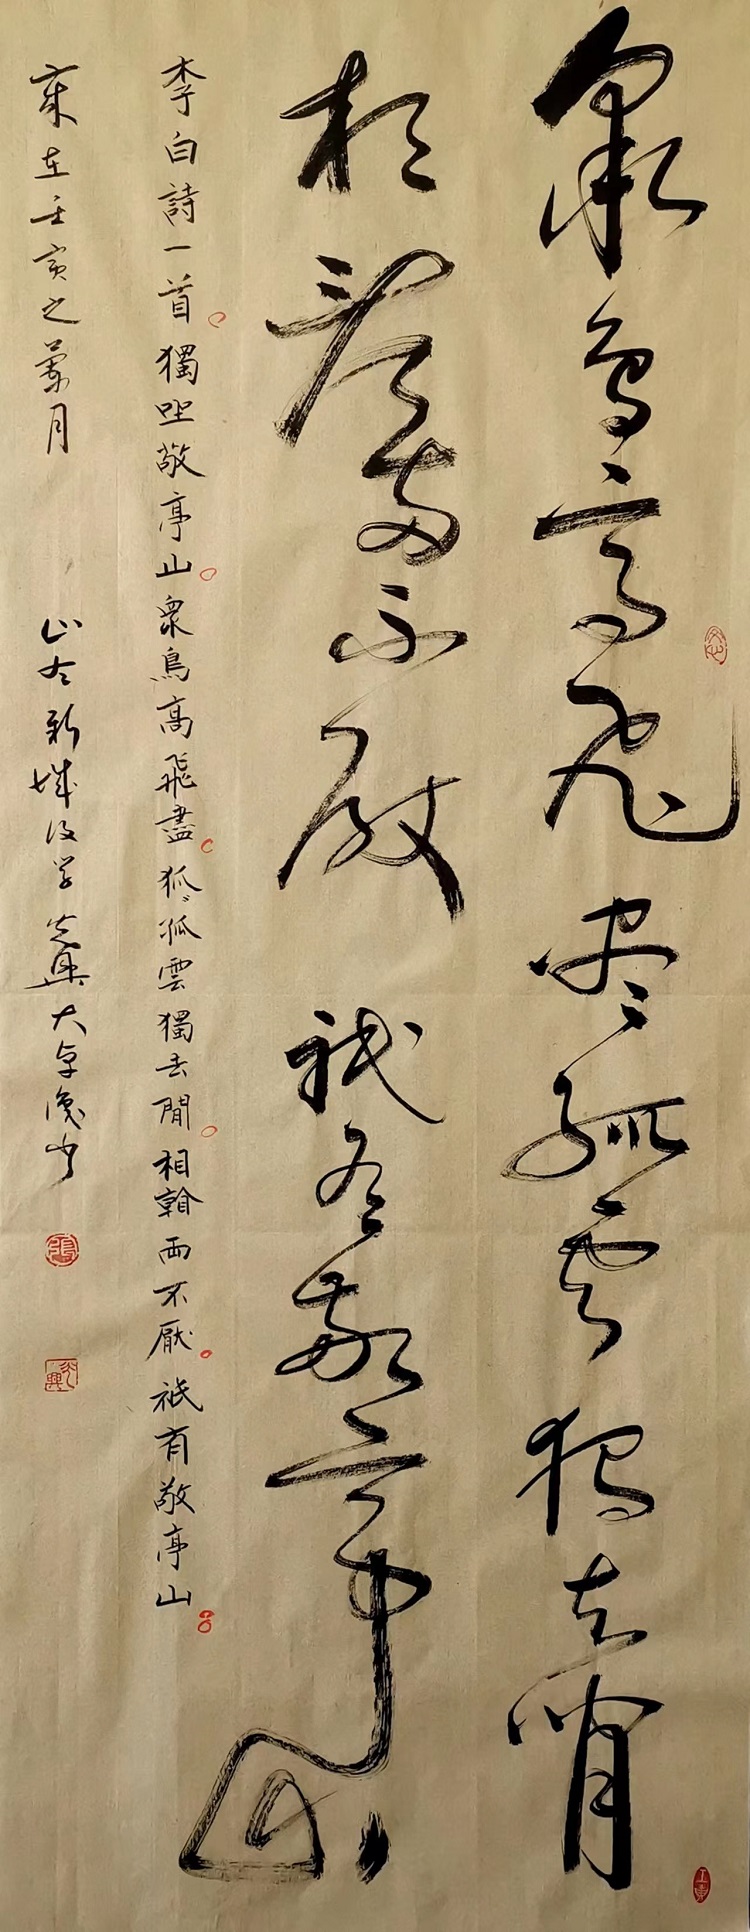 眾鳥高飛盡孤雲獨去閒
相看兩不厭祇有敬亭山
李白詩一首獨坐敬亭山眾鳥高飛盡狐孤雲獨去閒相看兩不厭祇有敬亭山
歲在壬寅之月 山左新城後學光興大草